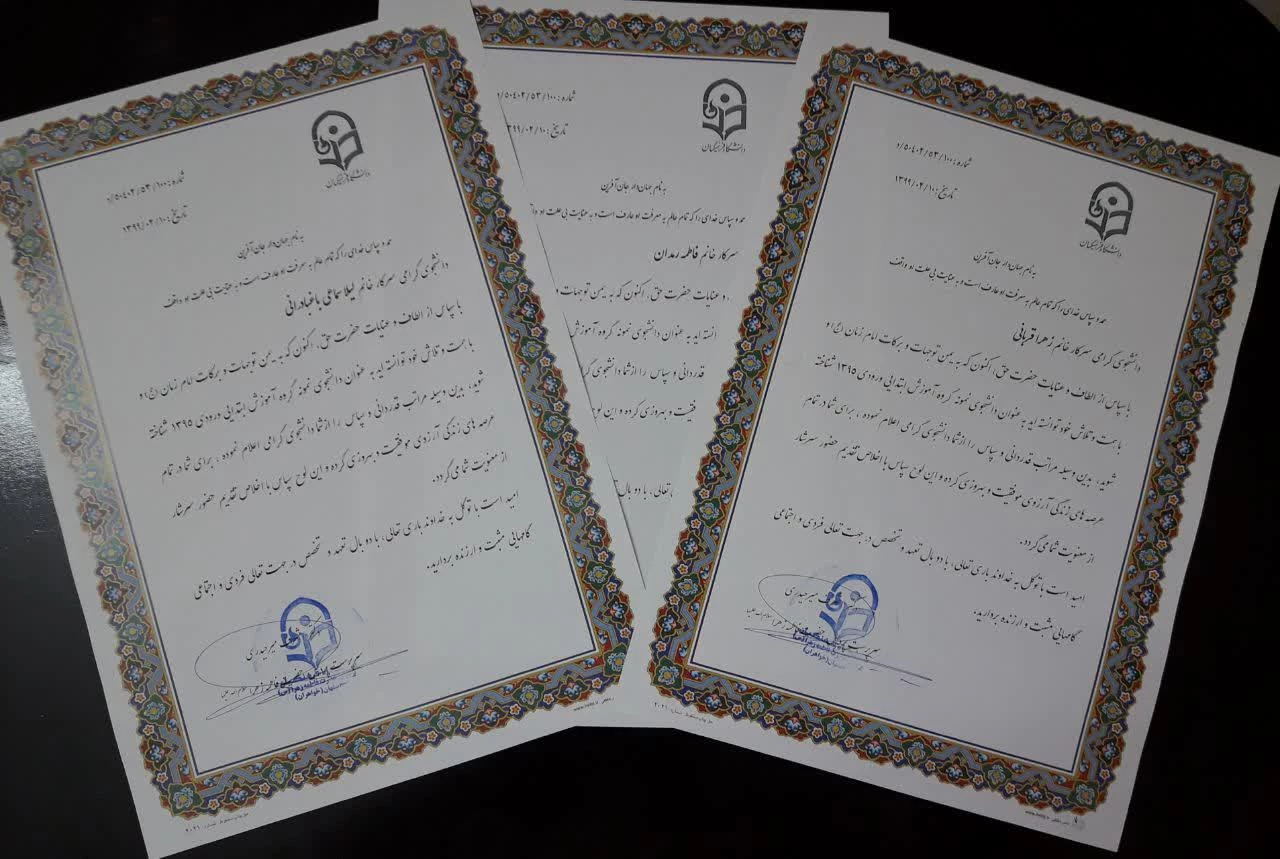 دانشگاه فرهنگیان
شماره: ۵۰۴۰۲/۵۳/۱۰۰/د
تاریخ: ۱۳۹۹/۰۲/۱۰
به نام جهان دار جان آفرین
حمد و سپاس خدای را که تمام عالم به معرفت او عارف است و به عنایت بی علت او واقف
دانشجوی گرامی سرکار خانم زهرا قربانی
با سپاس از الطاف و عنایات حضرت حق، اکنون که به یمن توجهات و برکات امام زمان (عج) و
با همت و تلاش خود توانسته اید به عنوان دانشجوی نمونه گروه آموزش ابتدایی ورودی ۱۳۹۵ شناخته
شوید، بدین وسیله مراتب قدردانی و سپاس را از شما دانشجوی گرامی اعلام نموده، برای شما در تمام
عرصه های زندگی آرزوی موفقیت و بهروزی کرده و این لوح سپاس با اخلاص تقدیم حضور سرشار
از معنویت شما می گردد.
امید است با توکل به خداوند باری تعالی، با دو بال تعهد و تخصص در جهت تعالی فردی و اجتماعی
گامهایی مثبت و ارزنده بردارید.
میرحیدری
سرپرست
(خواهران)
دانشگاه فرهنگیان
شماره: ۵۰۴۰۲/۵۳/۱۰۰/
تاریخ: ۱۳۹۹/۰۲/۱۰
به نام جهان دار جان آفرین
حمد و سپاس خدای را که تمام عالم به معرفت او عارف است و به عنایت بی علت او
سرکار خانم فاطمه رمدان
و عنایات حضرت حق، اکنون که به یمن توجهات
انسته اید به عنوان دانشجوی نمونه گروه آموزش
قدردانی و سپاس را از شما دانشجوی
فقیت و بهروزی کرده و این لوح
تعالی، با دو بال
دانشگاه فرهنگیان
شماره: ۵۰۴۰۲/۵۳/۱۰۰/د
تاریخ: ۱۳۹۹/۰۲/۱۰
به نام جهان دار جان آفرین
حمد و سپاس خدای را که تمام عالم به معرفت او عارف است و به عنایت بی علت او واقف
دانشجوی گرامی سرکار خانم لیلا سماعی باغبادرانی
با سپاس از الطاف و عنایات حضرت حق، اکنون که به یمن توجهات و برکات امام زمان (عج) و
با همت و تلاش خود توانسته اید به عنوان دانشجوی نمونه گروه آموزش ابتدایی ورودی ۱۳۹۵ شناخته
شوید، بدین وسیله مراتب قدردانی و سپاس را از شما دانشجوی گرامی اعلام نموده، برای شما در تمام
عرصه های زندگی آرزوی موفقیت و بهروزی کرده و این لوح سپاس با اخلاص تقدیم حضور سرشار
از معنویت شما می گردد.
امید است با توکل به خداوند باری تعالی، با دو بال تعهد و تخصص در جهت تعالی فردی و اجتماعی
گامهایی مثبت و ارزنده بردارید.
میرحیدری
سرپرست
(خواهران)